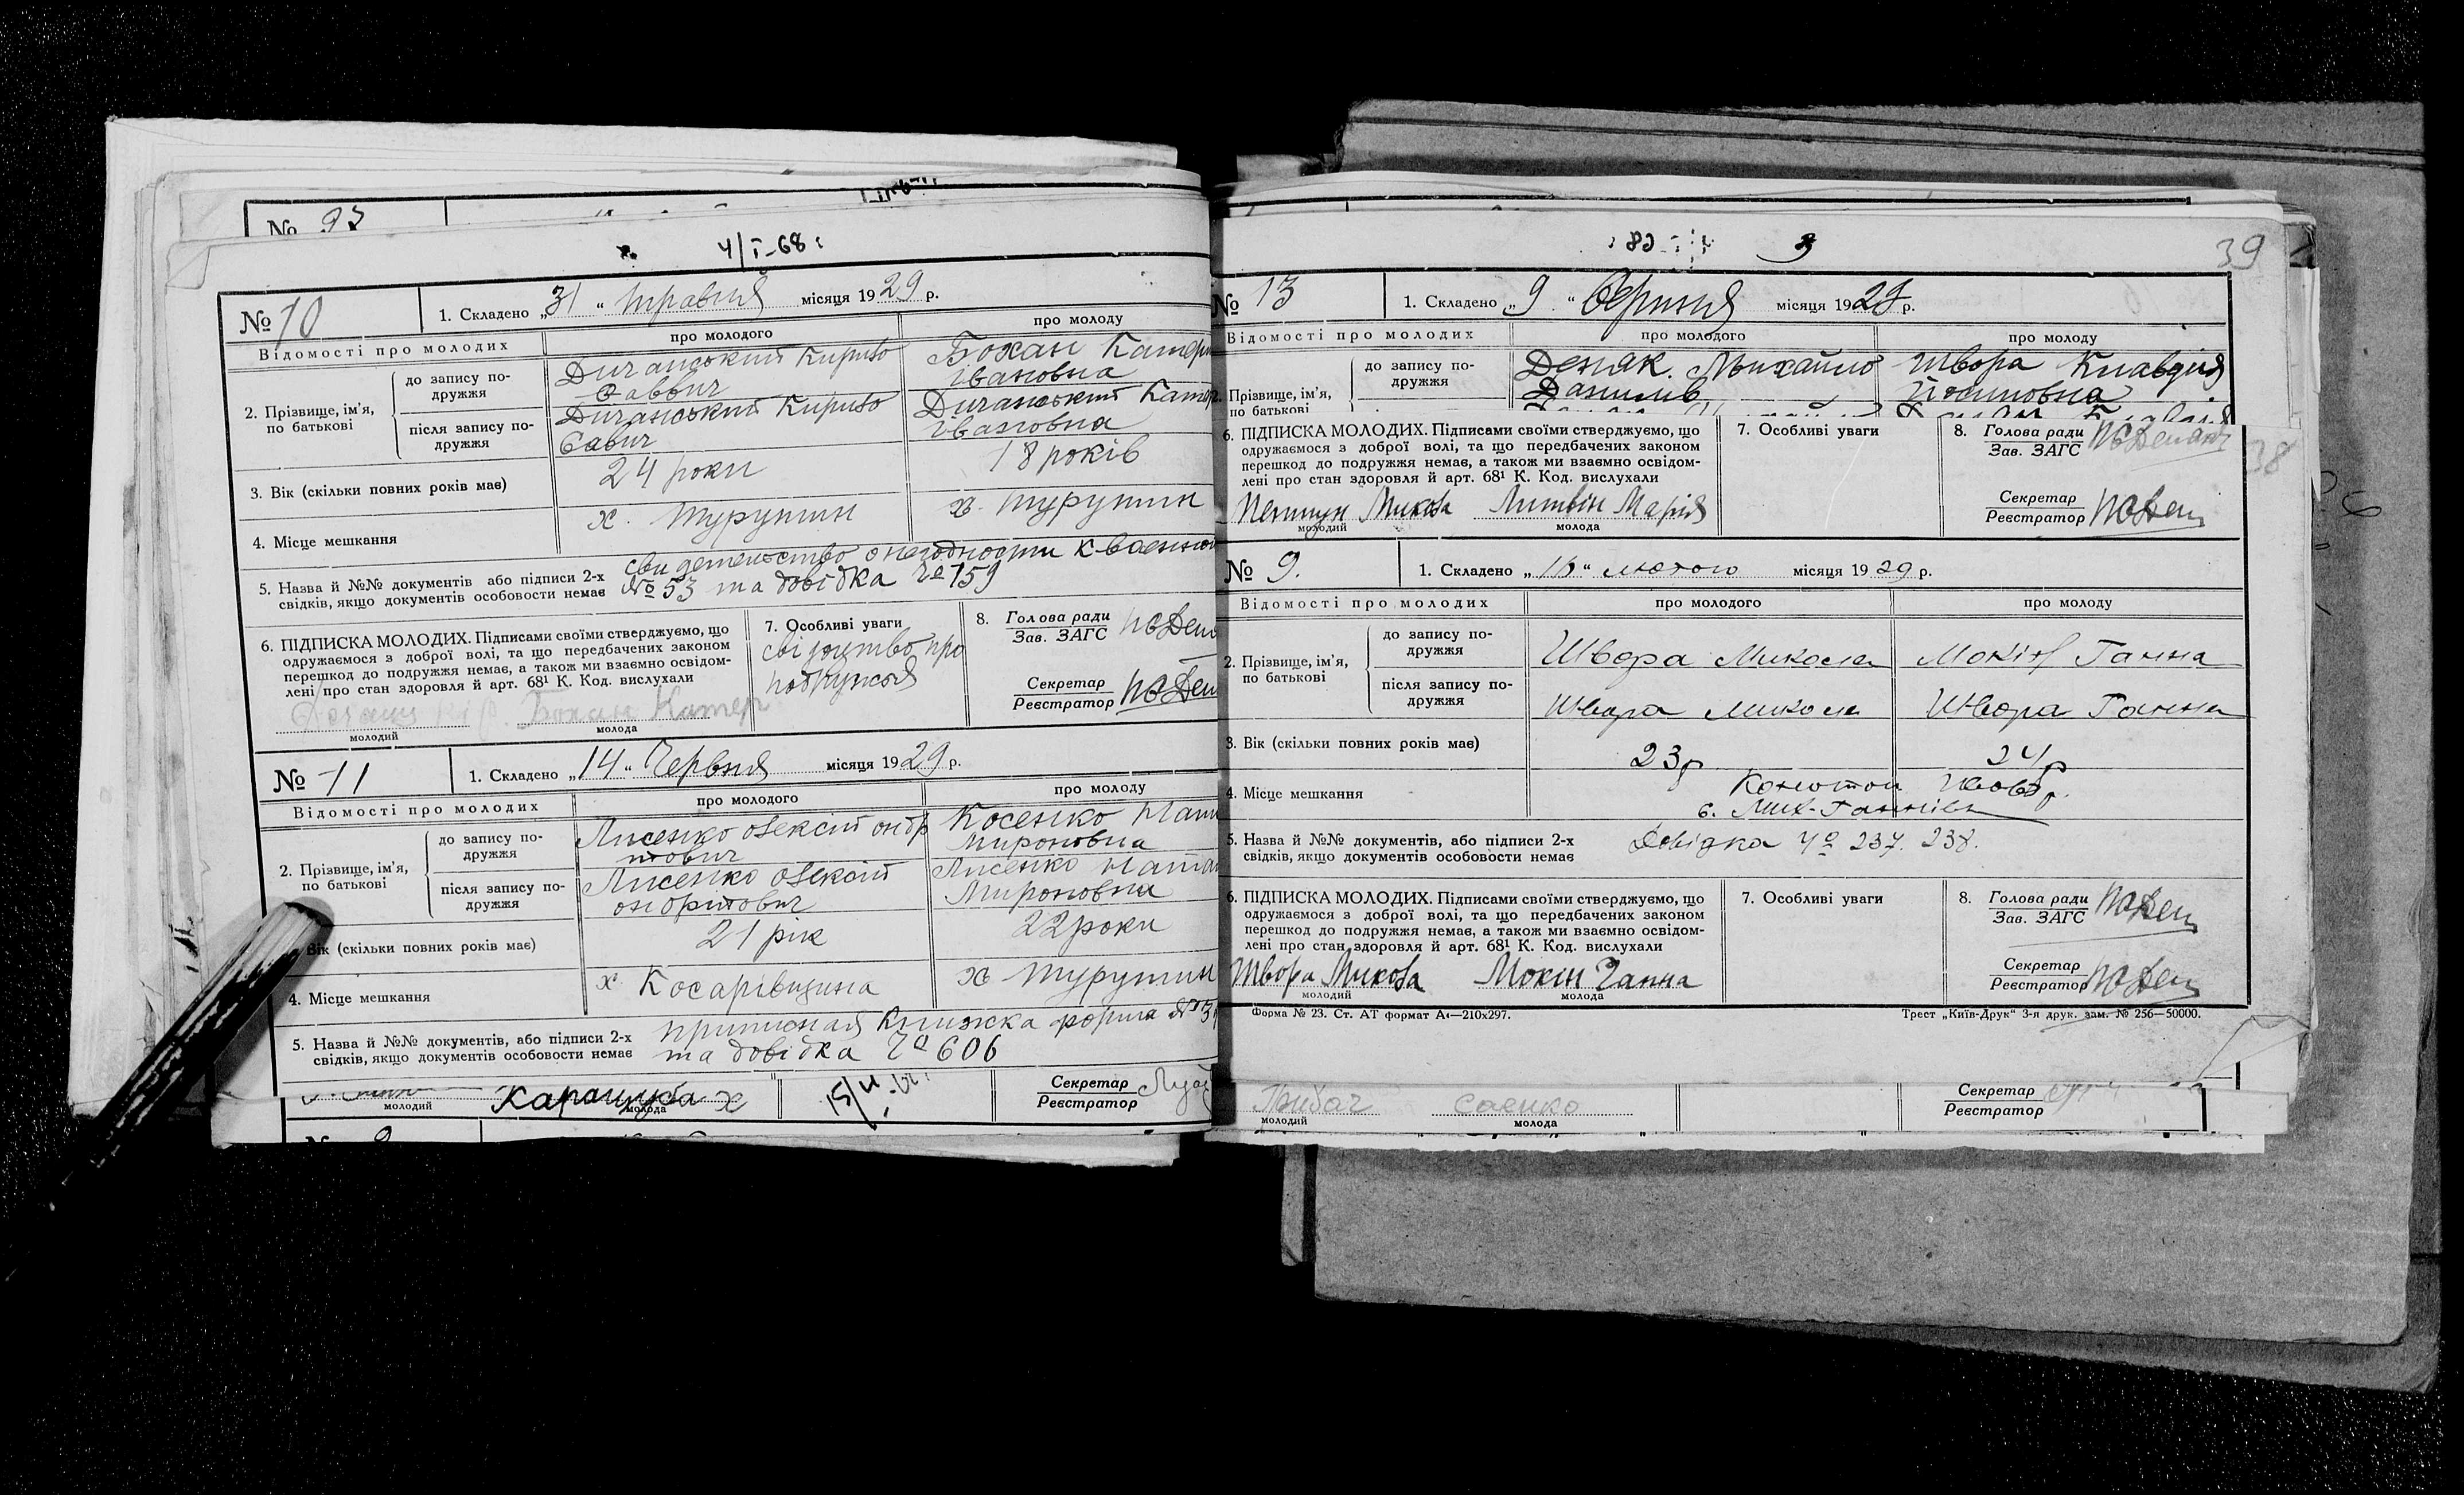 № 93
4/I-68 г
№ 10
1. Складено „31“ травня місяця 1929 р.
Відомості про молодих
про молодого
про молоду
2. Прізвище, ім’я, по батькові
до запису по-
дружжя
Дичанський Кирило
Саввич
Бохан Катери
Івановна
після запису по-
дружжя
Дичанський Кирило
Савич
Дичанський Катер
Івановна
3. Вік (скільки повних років має)
24 роки
18 років
4. Місце мешкання
х. Турутин
х. Турутин
5. Назва й №№ документів або підписи 2-х
свідків, якщо документів особовости немає
свидетельство о негодности к военной
№ 53 та довідка № 159
6. ПІДПИСКА МОЛОДИХ. Підписами своїми стверджуємо, що
одружаємося з доброї волі, та що передбачених законом
перешкод до подружжя немає, а також ми взаємно освідом-
лені про стан здоровля й арт. 68¹ К. Код. вислухали
Бохан Катер
молодий
молода
7. Особливі уваги
свідоцтво про
подружжя
8. Голова ради
Зав. ЗАГС
Секретар
Реєстратор
№ 11
1. Складено „14“ Червня місяця 1929 р.
Відомості про молодих
про молодого
про молоду
2. Прізвище, ім’я,
по батькові
до запису по-
дружжя
Лисенко
Косенко Ната
Мироновна
після запису по-
дружжя
Лисенко
Лисенко Ната
Мироновна
Вік (скільки повних років має)
21 рік
22 роки
4. Місце мешкання
х Косарівщина
х Турутин
5. Назва й №№ документів, або підписи 2-х
свідків, якщо документів особовости немає
приписная Книжка форма № 3
та довідка № 606
молодий
Карацуба х
молода
15/
Секретар
Реєстратор
39
№ 13
1. Складено „9“ Серпня місяця 1929 р.
Відомості про молодих
про молодого
про молоду
Прізвище, ім’я,
по батькові
до запису по-
дружжя
Депяк Михайло
Данилів
Швора Клавдія
6. ПІДПИСКА МОЛОДИХ. Підписами своїми стверджуємо, що
одружаємося з доброї волі, та що передбачених законом
перешкод до подружжя немає, а також ми взаємно освідом-
лені про стан здоровля й арт. 68¹ К. Код. вислухали
Микола Литвін Марія
молодий
молода
7. Особливі уваги
8. Голова ради
Зав. ЗАГС
Секретар
Реєстратор
38
№ 9.
1. Складено „16“ лютого місяця 1929 р.
Відомості про молодих
про молодого
про молоду
2. Прізвище, ім’я,
по батькові
до запису по-
дружжя
Швора Микола
Мокін Ганна
після запису по-
дружжя
Швора Микола
Швора Ганна
3. Вік (скільки повних років має)
23 р
24 р
4. Місце мешкання
Конотоп
с. Мих-Ганнівк
5. Назва й №№ документів, або підписи 2-х
свідків, якщо документів особовости немає
Довідка № 237. 238.
6. ПІДПИСКА МОЛОДИХ. Підписами своїми стверджуємо, що
одружаємося з доброї волі, та що передбачених законом
перешкод до подружжя немає, а також ми взаємно освідом-
лені про стан здоровля й арт. 68¹ К. Код. вислухали
Швора Микола Мокін Ганна
молодий
молода
7. Особливі уваги
8. Голова ради
Зав. ЗАГС
Секретар
Реєстратор
Форма № 23. Ст. АТ формат А₄—210x297.
Трест „Київ-Друк“ 3-я друк. зам. № 256—50000.
Саєнко
молодий
молода
Секретар
Реєстратор